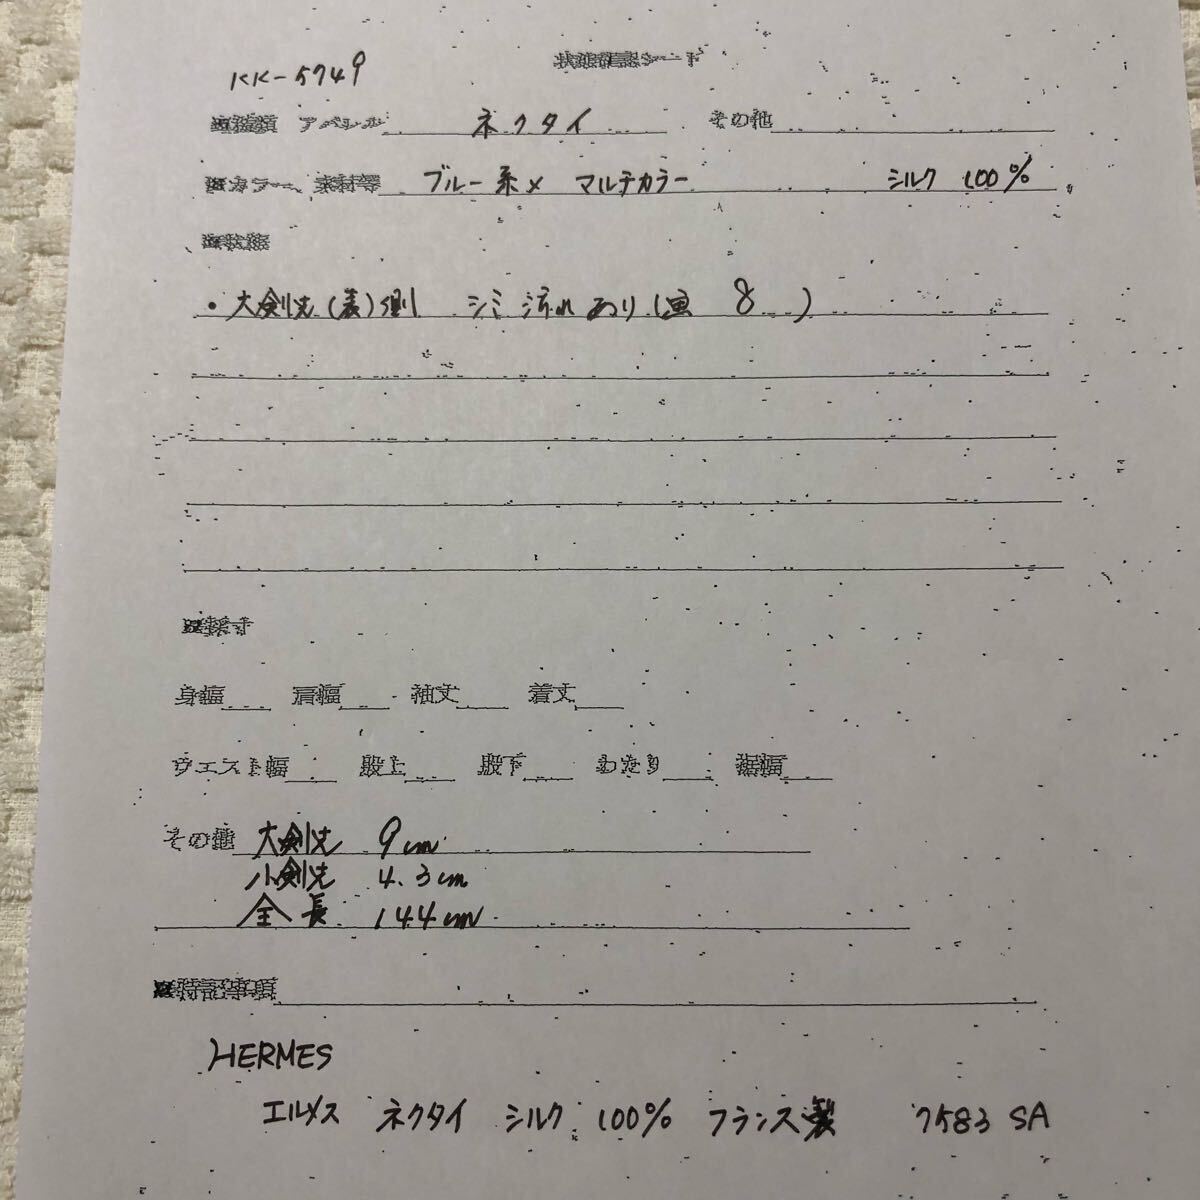 KK-5749
状態確認シート
■種類 アパレル ネクタイ その他
■カラー、素材等 ブルー系× マルチカラー シルク 100%
■状態
・大剣先(表)側 シミ汚れあり(画 8 )
■採寸
身幅 肩幅 袖丈 着丈
ウエスト幅 股上 股下 わたり 裾幅
その他 大剣先 9cm
小剣先 4.3cm
全長 144cm
■特記事項
HERMES
エルメス ネクタイ シルク 100% フランス製 7583 SA